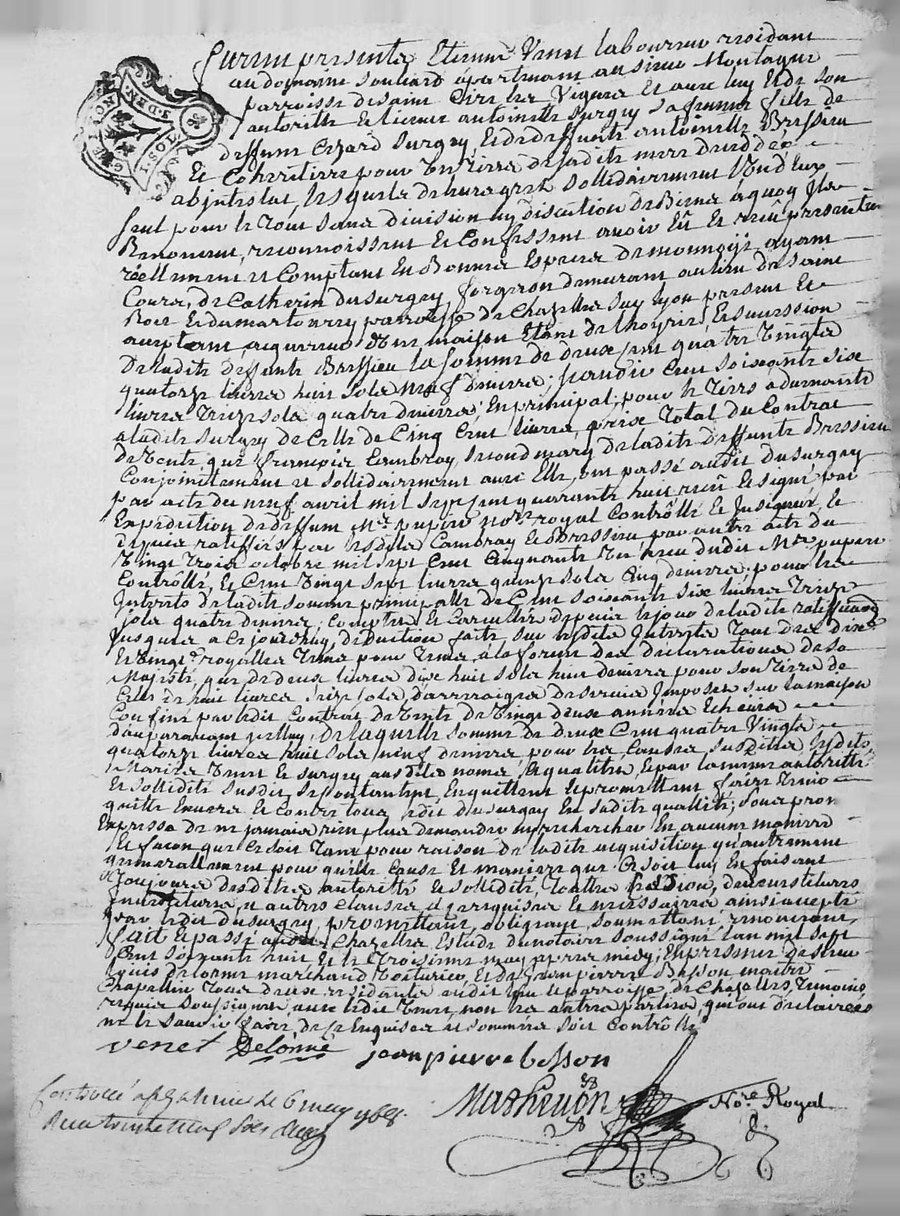 furent presents Etienne Venet laboureur residant
au domaine Souliard apartenant au sieur Montagne
parroisse de saint Cire les Vignes Et avec luy Et de son
autoritté Et licence antoinette Surgey sa femme fille de
deffunt Cezard Surgey, Et de deffunte antoinette Bressieu
Et Coheritiere pour Un tiers de ladite mere decedée
abintestat, lesquels de leur gré Sollidairement l'un d'eux
seul pour le tout sans division ny discution de Biens a quoy Ils
Renoncent, reconnoissent et Confessent avoir Eû Et reçû presentement
réellement et Comptant En Bonnes Especes de monnoye ayant
Cours, de Catherin dusurgey forgeron demeurant au lieu de saint
Roch Et du martourey parroisse de Chazelles sur lyon present Et
aceptant, acquereur d'une maison Etant de l'hoyrie, Et sucession
De ladite deffunte Bressieu la somme de deux cent quatre Vingts
quatorze livres huit sols neuf deniers; scavoir Cent soixante six
livres treize sols quatre deniers, En principal, pour le tiers advenant
a ladite Surgey de Celle de Cinq Cent livres, prix total du Contrat
de Vente que françois Cambray, second mary de ladite deffunte Bressieu
Conjointement et sollidairement avec Elle, ont passé audit dusurgey
par acte du neuf avril mil sept cent quarante huit reçû Et signé par
Expedition de deffunt Me pupier nore royal Controllé Et Insignué, Et
depuis ratiffiés par lesdits Cambray Et Bressieu par autre acte du
Vingt trois octobre mil sept Cent Cinquante Un reçu dudit Me pupier
Controllé, Et Cent Vingt sept livres quinze sols Cinq deniers, pour les
Interets de ladite somme principalle de Cent soixante six livres treize
sols quatre deniers, Comptés Et Carculés depuis le jour de ladite ratiffication
Jusques a Ce jourd'huy, deduction faite sur lesdits Interets tant des dixe
Et Vingt.e royalles à la forme des declarations de sa
Majesté, que de deux livres dixe huit sols huit deniers pour son tiers de
Celle de huit livres seize sols, d'arrerages de servis Imposés sur la maison
Confiné par ledit Contrat de Vente de Vingt deux années Echeües
auparavant, de laquelle somme de deux Cent quatre Vingts
quatorze livres huit sols neuf deniers pour les Causes susdittes, lesdits
Mariés Venet Et Surgey ausdits noms, Et qualités, Et par la meme autoritté
Et sollidité susdit se Contentent, En quittent Et promettent faire tenir
quitte Envers Et Contre tous ledit dusurgey En sadite qualité, sous prom
Expresse de ne jamais rien plus demander ny rechercher En aucune maniere
Et façon que Ce soit tant pour raison de ladite acquisition qu'autrement
generallement pour quelle Cause Et maniere que Ce soit luy En faisant
toujours desdites autoritté Et sollidité, toutte
et autres clauses a ce requises Et necessaires ainsi accepté
par ledit dusurgey, promettant, obligeant, soumettant, renoncant,
fait Et passé audit Chazelles Estude du notaire soussigné l'an mil sept
Cent soixante huit Et le troisieme may apres midy, En presence de sieur
louis delorme marchand Voiturier, Et de Jean pierre Besson maitre
Chapellier tous deux residants audit lieu Et parroisse de Chazelles, temoins
requis Soussignés, avec ledit Venet, non les autres parties, qui ont declairées
ne le savoir faire, de Ce Enquises et sommées soit Controllé
venet Delorme jean pierre besson
Mathevon Nore Royal
Controllé a st galmier le 6 may 1768
Reçu trente neuf sols